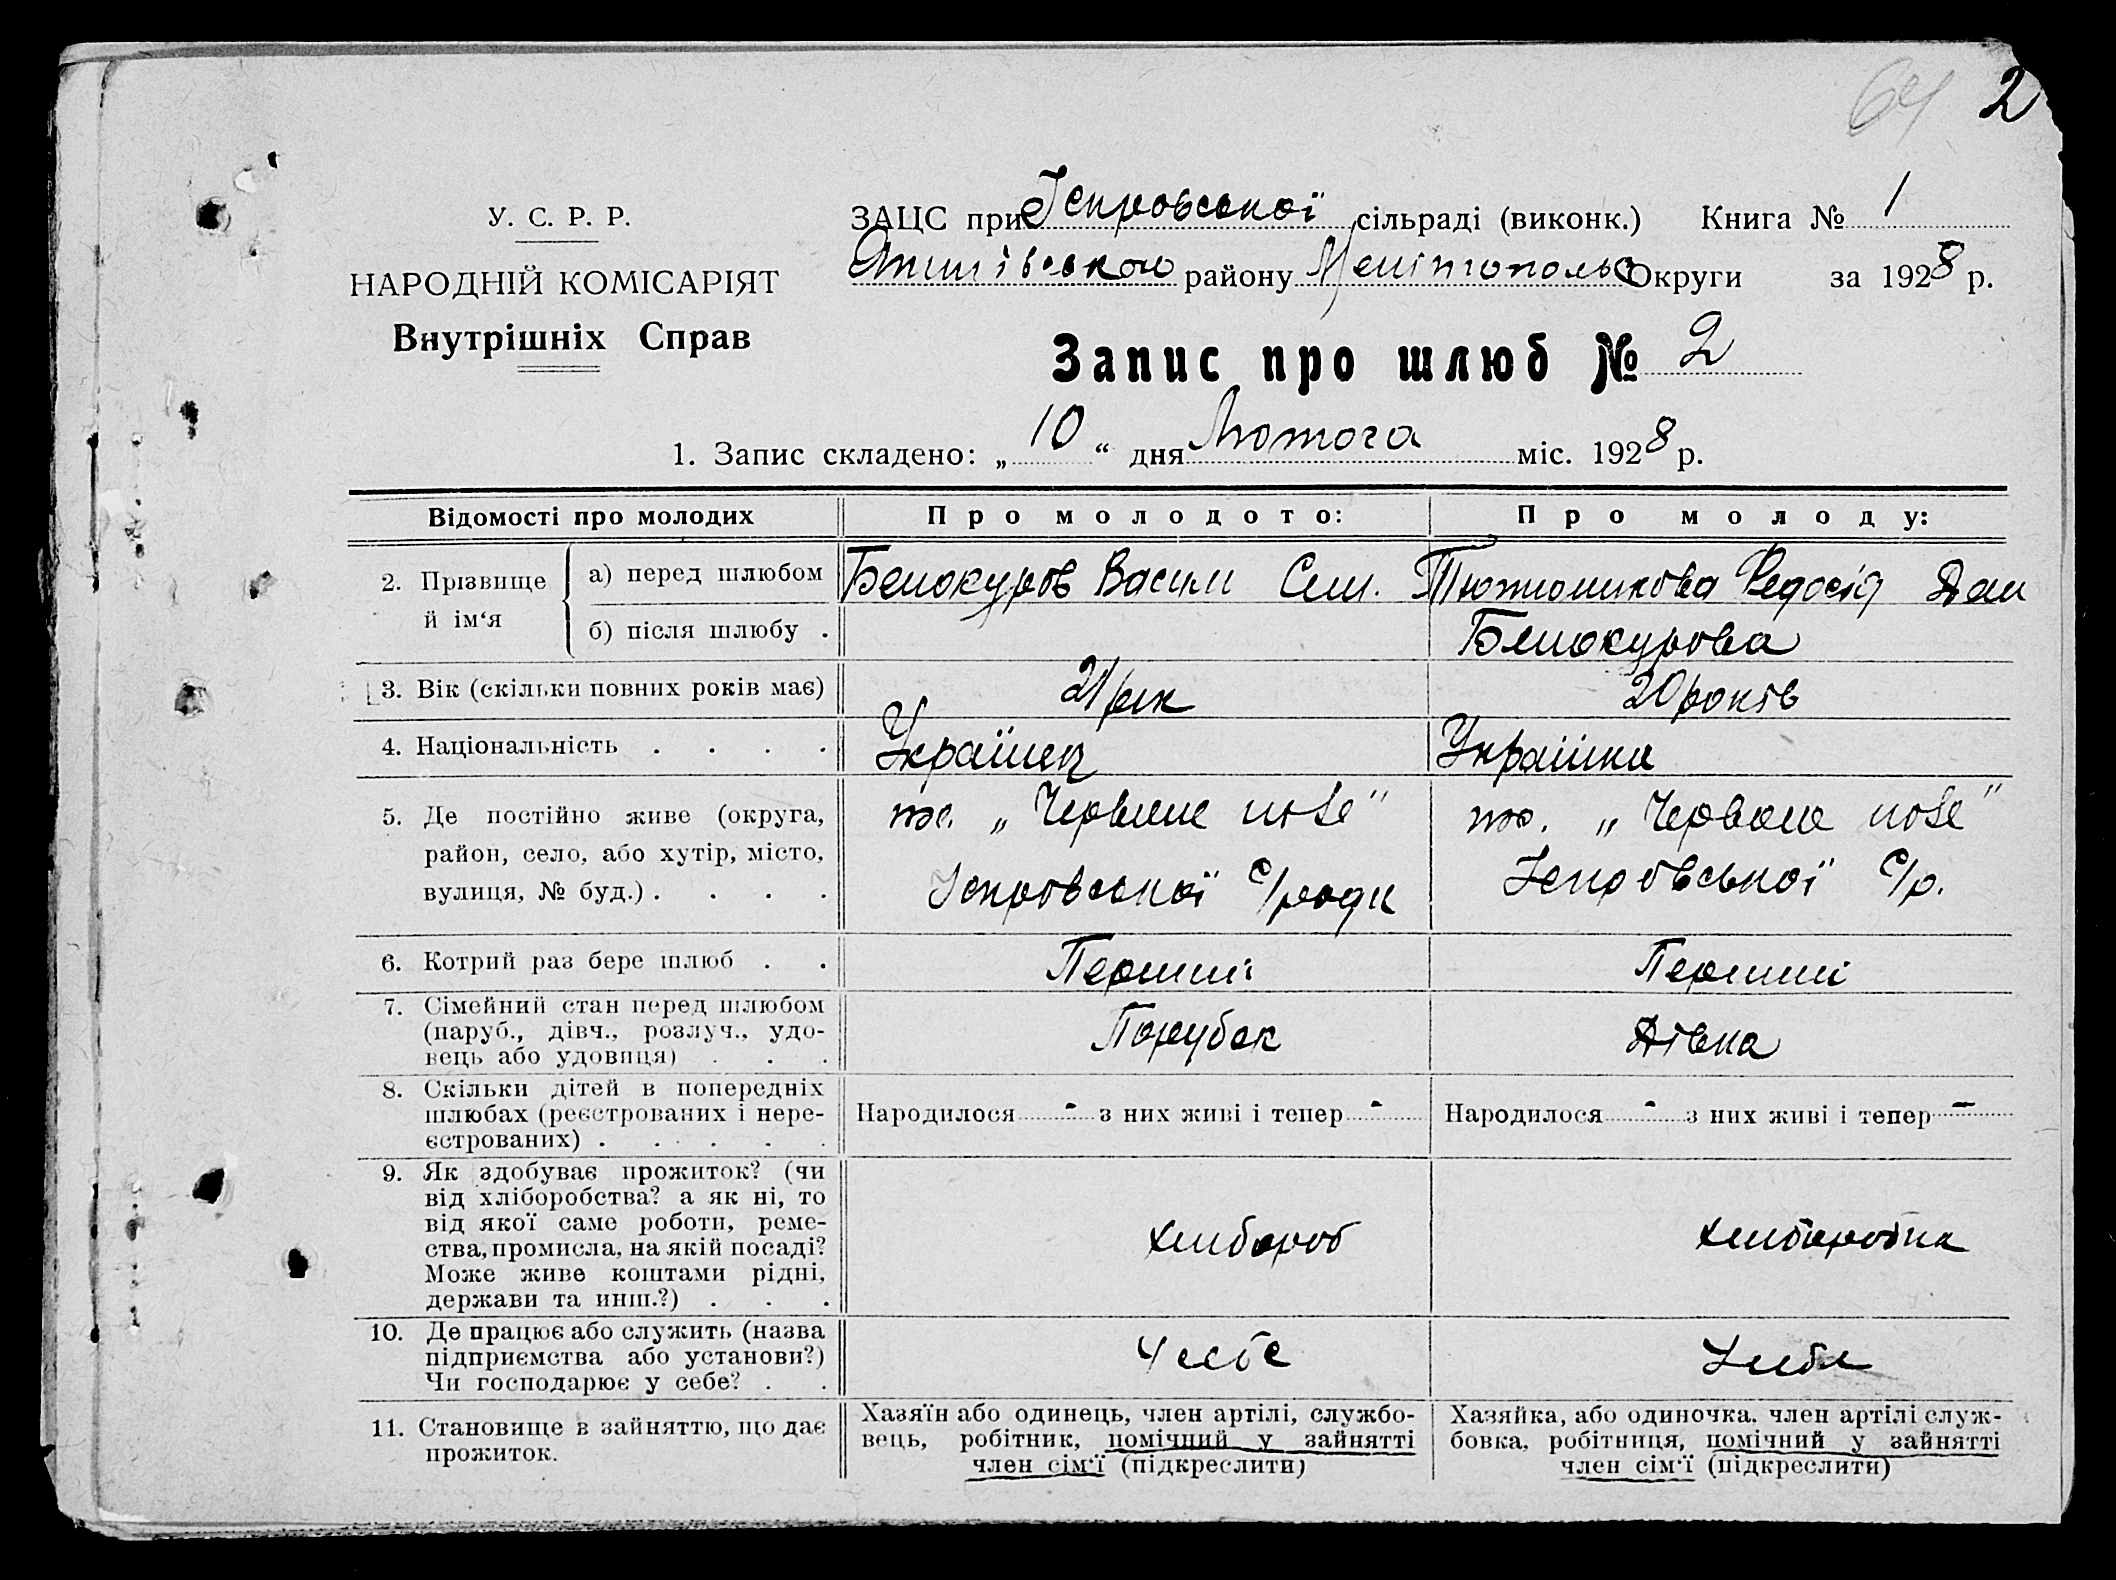 64 2
У. С. Р. Р.
ЗАЦС при Єпровської сільраді (виконк.) Книга № 1
НАРОДНІЙ КОМІСАРІЯТ
району Мелітопольс Округи за 1928 р.
Внутрішніх Справ
Запис про шлюб № 2
1. Запис складено: „ 10 “ дня Лютого міс. 1928 р.
Відомості про молодих
Про молодого:
Про молоду:
2. Прізвище й ім‘я
а) перед шлюбом
Белокуров Васил Сем.
Федосія Дан
б) після шлюбу .
Білокурова
3. Вік (скільки повних років має)
21 рік
20 років
4. Національність . . . .
Українец
Українка
5. Де постійно живе (округа,
район, село, або хутір, місто,
вулиця, № буд.) . . . .
„ Червоне поле “
с/ради
„ Червоне поле “
с/р.
6. Котрий раз бере шлюб . .
Перший
Перший
7. Сімейний стан перед шлюбом
(паруб., дівч., розлуч., удо-
вець або удовиця) . . .
Парубок
Дівка
8. Скільки дітей в попередніх
шлюбах (реєстрованих і нере-
єстрованих) . . . . .
Народилося - з них живі і тепер -
Народилося - з них живі і тепер -
9. Як здобуває прожиток? (чи
від хліборобства? а як ні, то
від якої саме роботи, реме-
ства, промисла, на якій посаді?
Може живе коштами рідні,
держави та инш.?) . . .
хлибороб
хлиборобка
10. Де працює або служить (назва
підприємства або установи?)
Чи господарює у себе? . .
У себе
У себе
11. Становище в зайняттю, що дає
прожиток.
Хазяїн або одинець, член артілі, службо-
вець, робітник, помічний у зайнятті
член сім‘ї (підкреслити)
Хазяйка, або одиночка, член артілі служ-
бовка, робітниця, помічний у зайнятті
член сім‘ї (підкреслити)